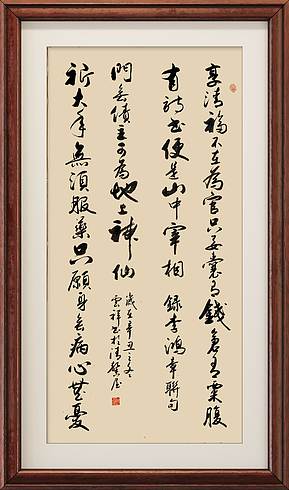 享清福不在為官只要囊有錢倉有粟腹
有詩書便是山中宰相 錄李鴻章聯句
祈大年無須服藥只願身無病心無憂
門無債主可為地上神仙
歲在辛丑之冬
雲祥書於清屋